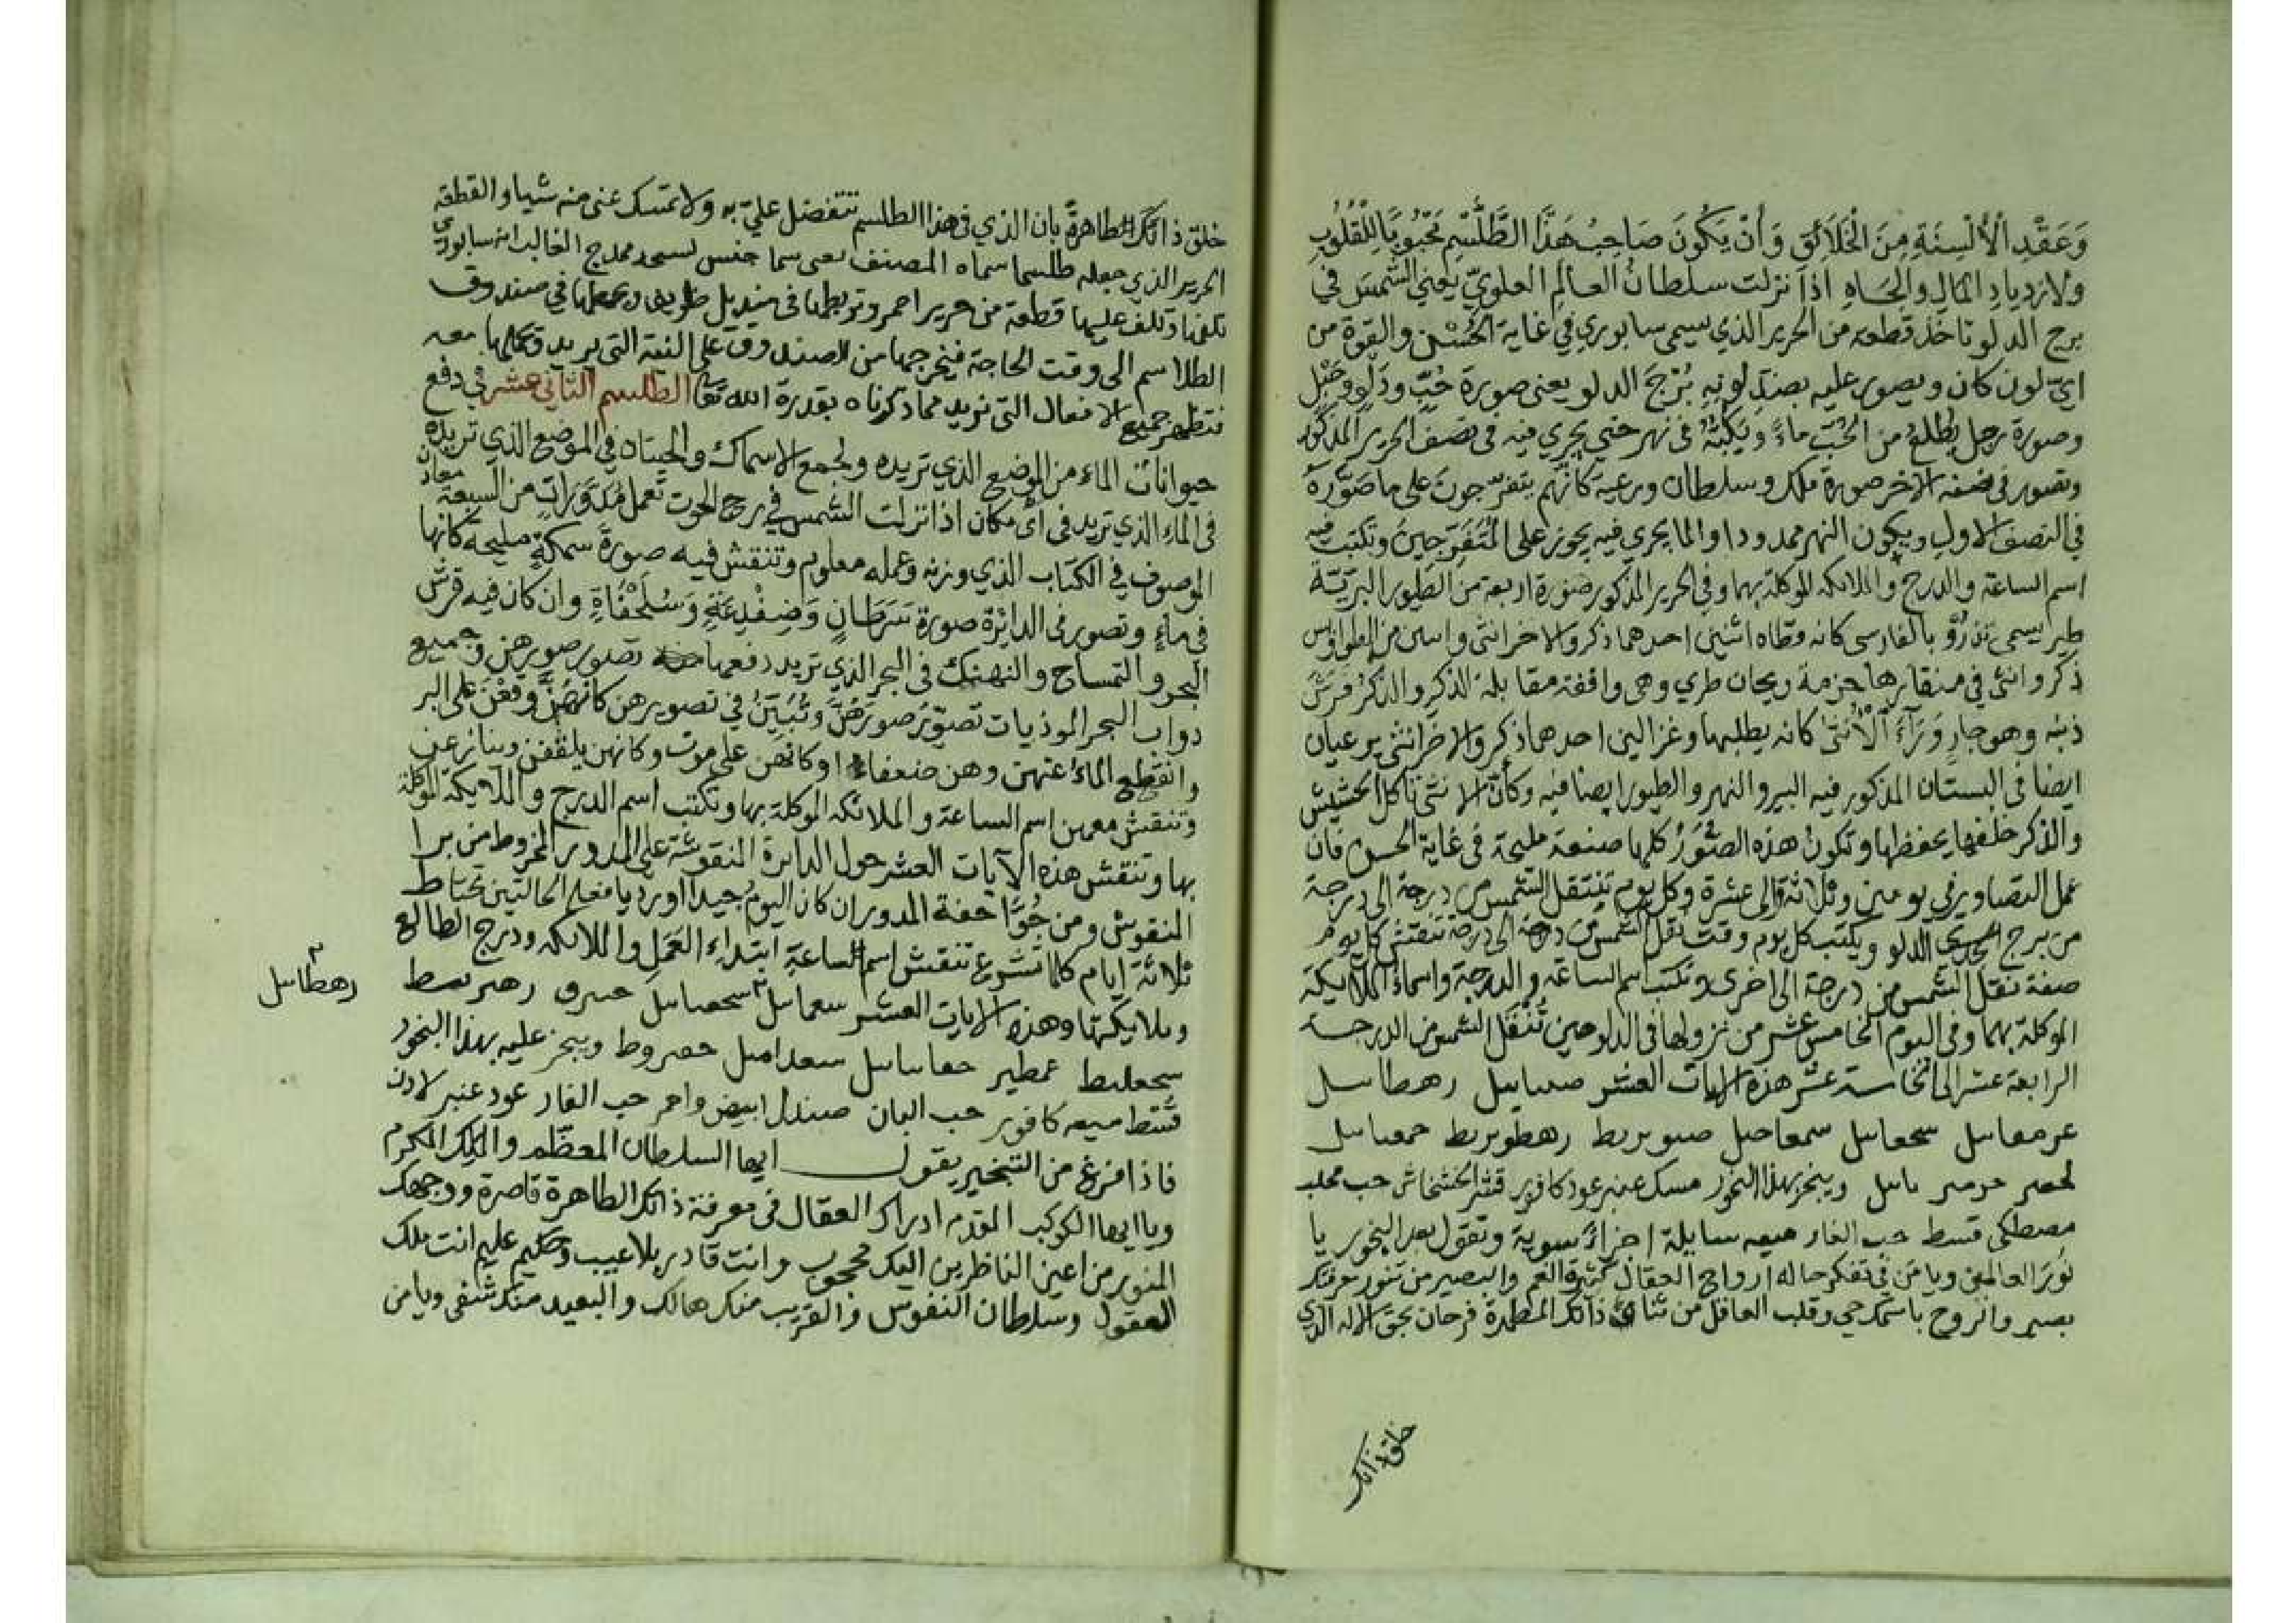 وَعَقْدِ الْأَلْسِنَةِ مِنَ الْخَلَائِقِ وَأَنْ يَكُونَ صَاحِبُ هَذَا الطَّلْسِمِ مَحْبُوبًا لِلْقُلُوبِ
ولازدياد المال والجاه اذا نزلت سلطان العالم العلوي يعني الشمس في
برج الدلو تاخذ قطعه من الحرير الذي يسمى سابوري في غاية الحسن والقوة من
اي لون كان ويصور عليه بضد لونه برج الدلو يعني صورة جب ودلو وحبل
وصورة رجل يطلع من الجب ماء ويكبه في نهر حتى يجري فيه في نصف الحرير المذكور
وتصور في نصفه الاخر صورة ملك وسلطان ورعيه كانهم يتفرجون على ما صوره
في النصف الاول ويكون النهر ممدودا والما يجري فيه يجوز على المتفرجين وتكتب فيه
اسم الساعة والدرج والملائكه الموكلة بهما وفي الحرير المذكور صورة اربعة من الطيور البرية
طير يسمى تذرو بالفارسى كانه قطاه اثنين احدهما ذكر والاخر انثى واثنين من الطواويس
ذكر وانثى في منقارها حزمة ريحان طري وهي واقفة مقابلة الذكر والذكر فرش
ذنبه وهو جار وراء الانثى كانه يطلبها وغزالين احدهما ذكر والاخر انثى يرعيان
ايضا في البستان المذكور فيه البير والنهر والطيور ايضا فيه وكأن الانثى تاكل الحشيش
والذكر خلفها يحفظها وتكون هذه الصور كلها صنعة مليحة في غاية الحسن فان
عمل التصاوير في يومين وثلاثة الى عشرة وكل يوم تنتقل الشمس من درجة الى درجة
من برج الدلو ويكتب كل يوم وقت نقل الشمس من درجة الى درجة تنقش كل يوم
صفة نقل الشمس من درجة الى اخرى وتكتب اسم الساعة والدرجة واسماء الملائيكة
الموكلة بهما وفي اليوم الخامس عشر من نزولها في الدلو حين تنقل الشمس من الدرجة
الرابعة عشر الى الخامسة عشر هذه الايات العشر
ويبخر بهذا البخور مسك عنبر عود كافور قشر الخشخاش حب محلب
مصطكى قسط حب الغار ميعه سايلة اجزاء سوية وتقول بعد البخور يا
نور العالمين ويا من في تفكر حاله ارواح العقال كثيرة الغم والبصير من تنور معرفتك
بصير والروح باسمك حي وقلب العاقل من ثناء ذاتك المطهرة فرحان بحق الاله الذي
خلق ذاتك
خلق ذاتك الطاهرة بان الذي في هذا الطلسم تتفضل علي به ولا تمسك عنى منه شيا والقطعة
الحرير الذي جعله طلسما سماه المصنف الغالب انه سابوري
تلفها وتلف عليها قطعة من حرير احمر وتربطها في منديل ويحطها في صندوق
الطلاسم الى وقت الحاجة فيخرجها من الصندوق على النية التي يريد معه
فتظهر جميع الافعال التى تريد مما ذكرناه بقدرة الله تعا الطلسم الثاني عشر في دفع
حيوانات الماء من الموضع الذي تريده ولجمع الاسماك والحيتان في الموضع الذي تريده
في الماء الذي تريد في اي مكان اذا نزلت الشمس في برج الحوت تعمل مدورات من السبعة معادن
الموصوف في الكتاب الذي وزنه وعمله معلوم وتنقش فيه صورة سمكة مليحة كانها
في ماء وتصور في الدائرة صورة سرطان وضفدعة وسلحفاة وان كان فيه قرش
البحر والتمساح والنهنك في البحر الذي تريد دفعها تصور صورهن وجميع
دواب البحر الموذيات تصور صورهن وتبين في تصويرهن كانهن وقعن على البر
وانقطع الماء عنهن وهن ضعفاء او كانهن على موت وكانهن يلقفن وينازعن
وتنقش معهن اسم الساعة والملائكه الموكلة بها وتكتب اسم الدرج والملائيكة الموكلة
بها وتنقش هذه الايات العشر حول الدايرة المنقوشة على المدور المخروط من برا
المنقوش ومن جوا حفة المدور ان كان اليوم جيدا او رديا فعلى الحالتين تحتاط
ثلاثة ايام كلما تشرع تنقش اسم الساعة ابتداء العمل والملائكه ودرج الطالع
وملايكتها وهذه الايات العشر
رهطاسل
ويبخر عليه بهذا البخور
قسط ميعه كافور حب البان صندل ابيض واحمر حب الغار عود عنبر لادن
فاذا فرغ من التبخير يقول ايها السلطان المعظم والملك المكرم
ويا ايها الكوكب المقدم ادراك العقال في معرفة ذاتك الطاهرة قاصرة ووجهك
المنور من اعين الناظرين اليك محجوب وانت قادر بلا عيب وحكيم عليم انت ملك
العقول وسلطان النفوس والقريب منك هالك والبعيد منك شقى ويا من